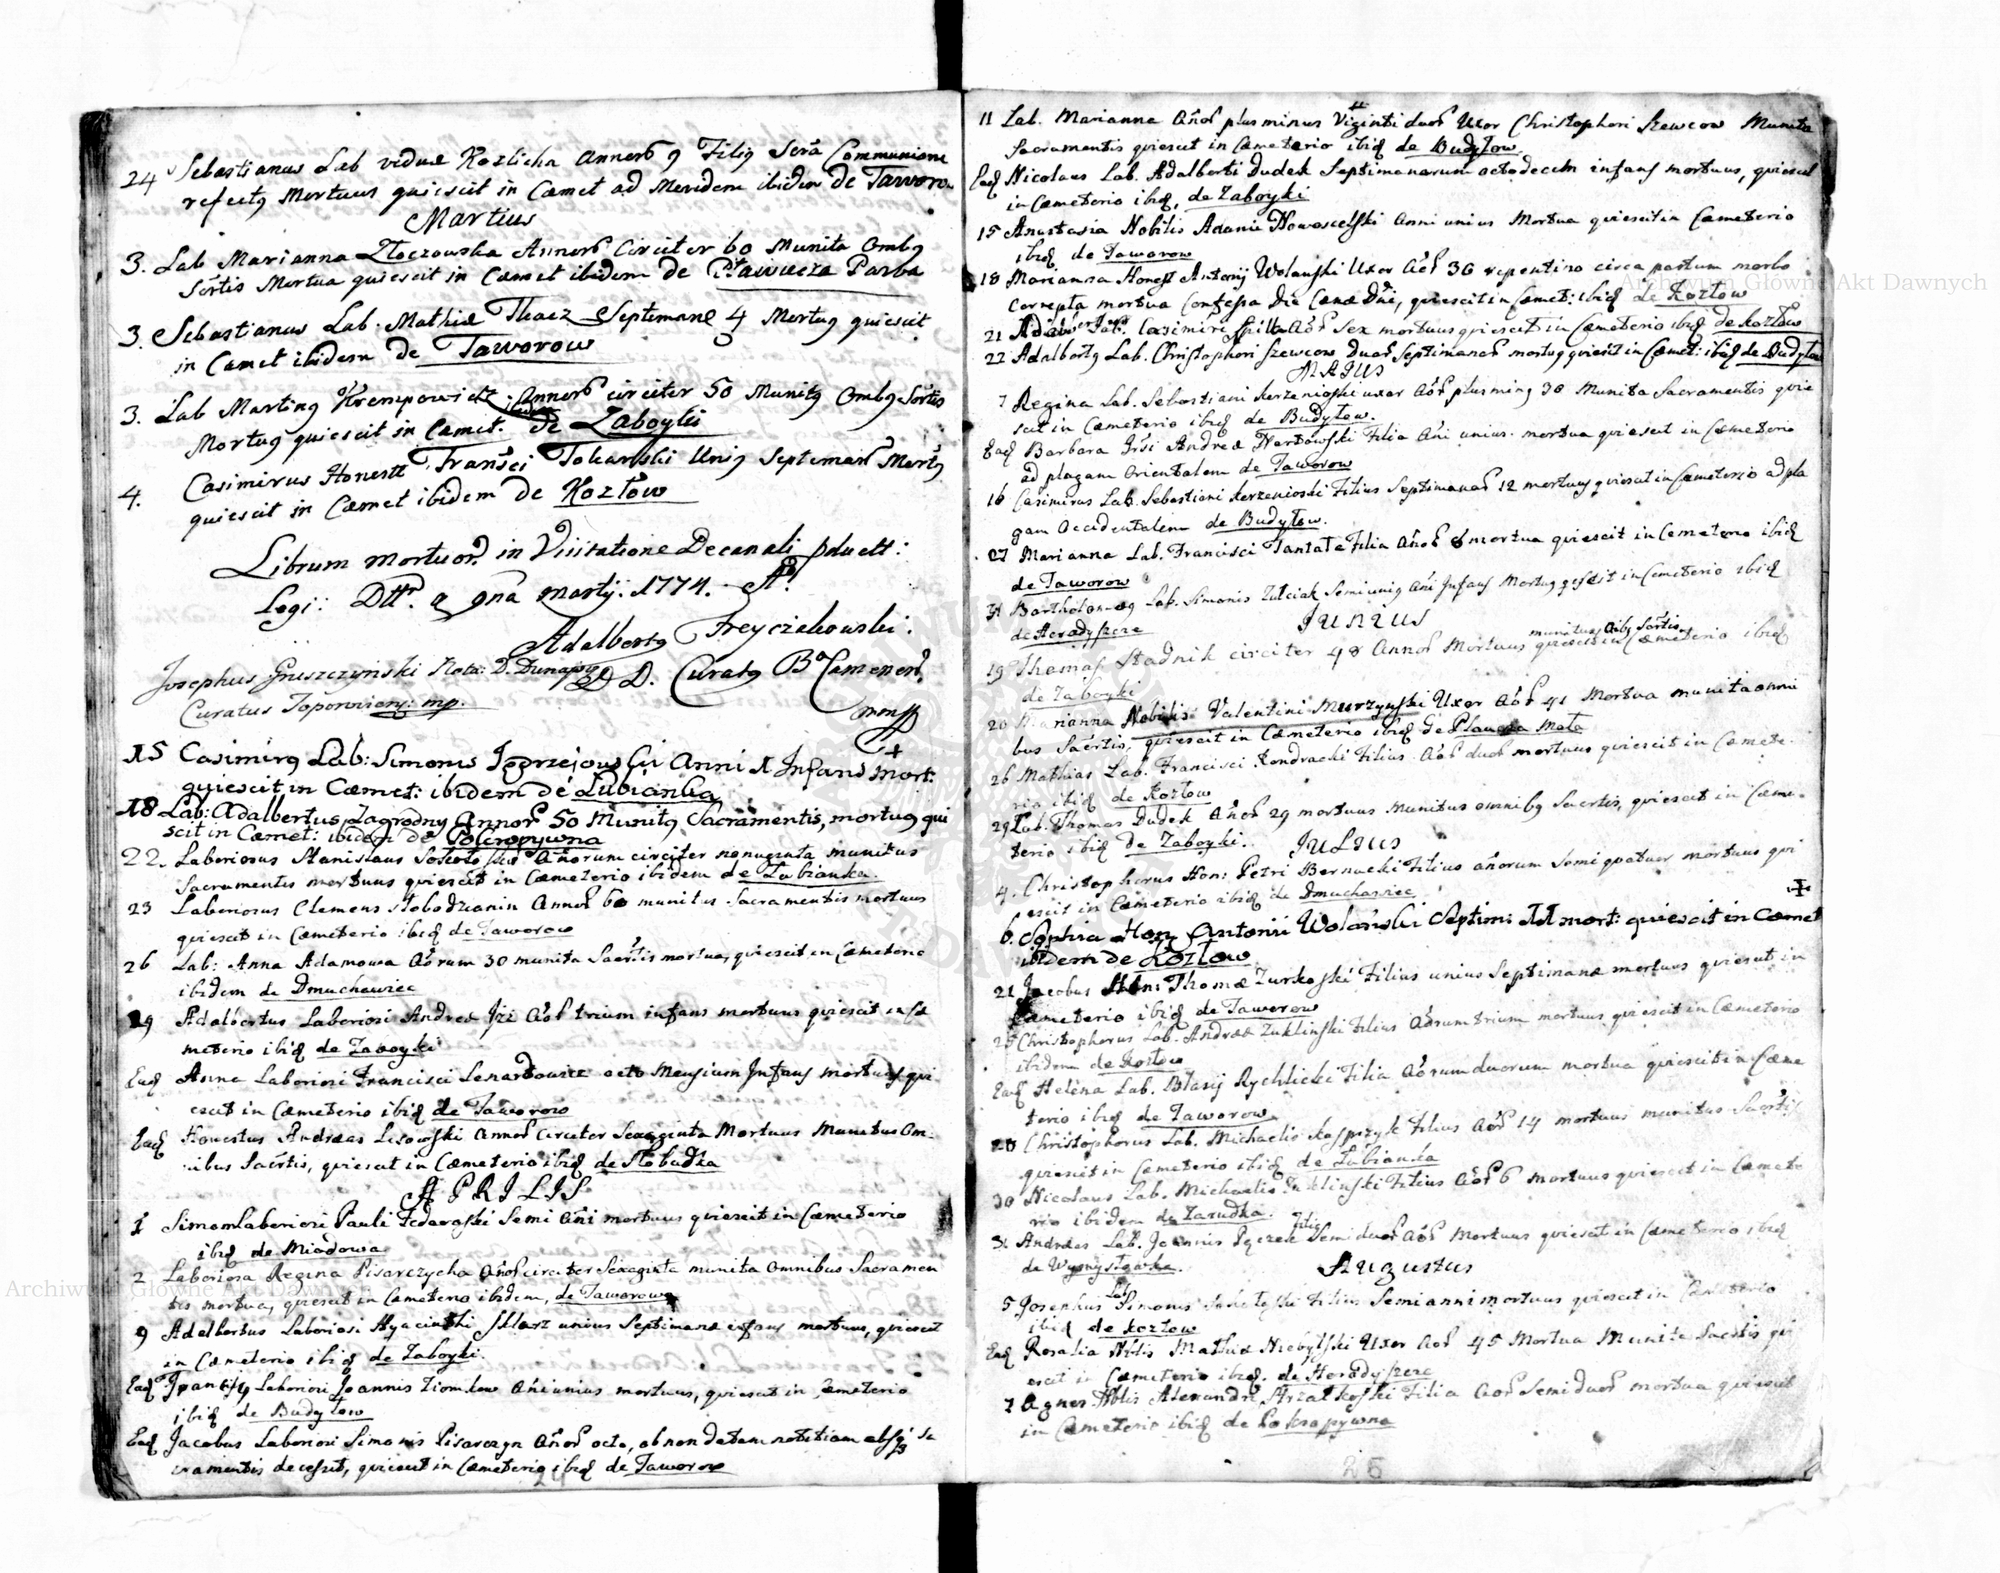 24 Sebastianus Lab viduæ Kozlicha Annorũ 9 Fili9 Sera Communione
refect9 Mortuus quiescit in Cæmet ad Meridem ibidem de Taworow
Martius
3. Lab Marianna Złoczowska Annorũ Circiter 60 Munita Omb9
Scrtis Mortua quiescit in Cæmet ibidem de Pławucza Parva
3. Sebastianus Lab. Mathiæ Tkacz Septimanæ 4 Mortu9 quiescit
in Cæmet ibidem de Taworow
3. Lab Martin9 Krempowicz Annorũ circiter 50 Munit9 Omb9 Scrtis
Mortu9 quiescit in Cæmet. de Zaboyki
4. Casimirus Honesti Franści Tokarski Uni9 Septiman Mortu9
quiescit in Cæmet ibidem de Kozłow
Librum mortuor. in Visitatione Decanali
Legi: 9na martij: 1774.
Adalbert9 Freyczakowski.
Josephus Gruszczynski Nota: D. Dunajow D. Curat9
Curatus Toporoviens: mp.
15 Casimir9 Lab: Simonis Anni 1 Infans mort:
quiescit in Cæmet: ibidem de Łubianka
18 Lab: Adalbertus Zagrodny Annor 50 Munit9 Sacramentis, mortu9 qui
scit in Cæmet: ibidem de Pokropywna
22. Laboriosus Stanislaus Añorum circiter nonaginta munitus
Sacramentis mortuus quiescit in Cæmeterio ibidem de Łubianka.
23 Laboriosus Clemens Słobodzianin Annor 60 munitus Sacramentis mortuus
quiescit in Cæmeterio ibid de Taworow
26 Lab: Anna Adamowa Añorum 30 munita Sacrtis mortua, quiescit in Cæmeterio
ibidem de Dmuchawiec
29 Adalbertus Laboriosi Andreæ Añor trium infans mortuus quiescit in Cæ
meterio ibid de Zaboyki
Ead Anna Laboriosi Francisci Lenartowicz octo Mensium Infans mortua qui
escit in Cæmeterio ibid de Taworow
Ead Honestus Andreas Lisowski Annor circiter Sexaginta Mortuus Munitus Om-
nibus Sacrtis, quiescit in Cæmeterio ibid de Słobudka
APRILIS
1 Simon Laboriosi Pauli Semi Añi mortuus quiescit in Cæmeterio
ibid de Miodowa
2 Laboriosa Regina Pisarczycha Añor circiter Sexaginta munita Omnibus Sacramen
tis mortua, quiescit in Cæmeterio ibidem, de Taworow
9 Adalbertus Laboriosi Hyacinthi Sklarz unius Septimanæ infans mortuus, quiescit
in Cæmeterio ibid de Zaboyki.
Ead Laboriosi Joannis Añi unius mortuus, quiescit in Cæmeterio
ibid de Budyłow
Ead Jacobus Laboriosi Simonis Pisarczyn Añor octo, ob non datam notitiam absq3 Sa
cramentis decessit, quiescit in Cæmeterio ibid de Taworow
11 Lab. Marianna Añor plus minus Viginti duor Uxor Christophori Szewcow Munita
Sacramentis quiescit in Cæmeterio ibid de Budyłow
Ead Nicolaus Lab. Adalberti Dudek Septimanarum octodecim infans mortuus, quiescit
in Cæmeterio ibid, de Zaboyki
15 Anastasia Nobilis Adami Nowosielski Anni unius Mortua quiescit in Cæmeterio
ibid de Taworow
18 Marianna Honest Antonij Wolański Uxor Añor 36 repentino circa partum morbo
correpta mortua Confessa Die Cænæ Dñi, quiescit in Cæmet: ibid de Kozłow
21 Adam Casimiri Añor Sex mortuus quiescit in Cæmeterio ibid de Kozłow
22 Adalbert9 Lab. Christophori Szewcow Duar Septimanar mortu9 quiescit in Cæmet: ibid de Budyłow
MAIUS
7 Regina Lab. Sebastiani uxor Añor plus min9 30 Munita Sacramentis quie
scit in Cæmeterio ibid de Budyłow.
Ead Barbara Andreæ Nartowski Filia Añi unius. mortua quiescit in Cæmeterio
ad plagam Orientalem de Taworow
16 Casimirus Lab. Sebastiani Filius Septimanar 12 mortuus quiescit in Cæmeterio ad pla
gam Occidentalem de Budyłow.
27 Marianna Lab. Francisci Tantała Filia Añor 8 mortua quiescit in Cæmeterio ibid
de Taworow
31 Bartholomæ9 Lab. Simonis Semi uni9 Añi Infans Mortu9 in Cæmeterio ibid
de Horadyszcze
JUNIUS
19 Thomas Stadnik circiter 48 Annor Mortuus munitus oib9 Scrtis quiescit in Cæmeterio ibid
de Zaboyki
20 Marianna Nobilis Valentini Murzynski Uxor Añor 41 Mortua munita omni
bus Sacrtis, quiescit in Cæmeterio ibid de Plaucza Mała
26 Mathias Lab. Francisci Kondracki Filius Añor duor mortuus quiescit in Cæmete-
rio ibid de Kozłow
29 Lab. Thomas Dudek Añor 29 mortuus Munitus omnib9 Sacrtis, quiescit in Cæme-
terio ibid de Zaboyki.
JULIUS
4. Christophorus Hon: Petri Bernacki Filius añorum Semi quatuor mortuus qui
escit in Cæmeterio ibid de Dmuchawiec
6. Sophia Hon: Antonii Wolański Septim: 11 mort: quiescit in Cæmet
ibidem de Kozłow
21 Jacobus Hon: Thomæ Zurkoski Filius unius Septimanæ mortuus quiescit in
Cæmeterio ibid de Taworow
25 Christophorus Lab. Andreæ Zuklinski Filius Añorum trium mortuus quiescit in Cæmeterio
ibidem de Kozłow
Ead Helena Lab. Blasij Rychlicki Filia Añorum duorum mortua quiescit in Cæme
terio ibid de Taworow
28 Christophorus Lab. Michaelis Kasprzyk Filius Añor 14 mortuus munitus Sacrtis
quiescit in Cæmeterio ibid de Łubianka
30 Nicolaus Lab. Michaelis Zuklinski Filius Añor 6 mortuus quiescit in Cæmete
rio ibidem de Zarudka.
31 Andreas Lab. Joannis Filius Semi duor Añor Mortuus quiescit in Cæmeterio ibid
de
Augustus
5 Josephus Lab Simonis Filius Semi anni mortuus quiescit in Cæmeterio
ibid de Kozłow
Ead Rosalia Nblis Mathiæ Uxor Añor 45 Mortua Munita Sacrtis qui
escit in Cæmeterio ibid. de Horadyszcze
7 Agnes Nblis Alexandri Filia Añor Semi duor mortua quiescit
in Cæmeterio ibid de Pokropywna
26
Archiwum Główne Akt Dawnych
Archiwum Główne Akt Dawnych